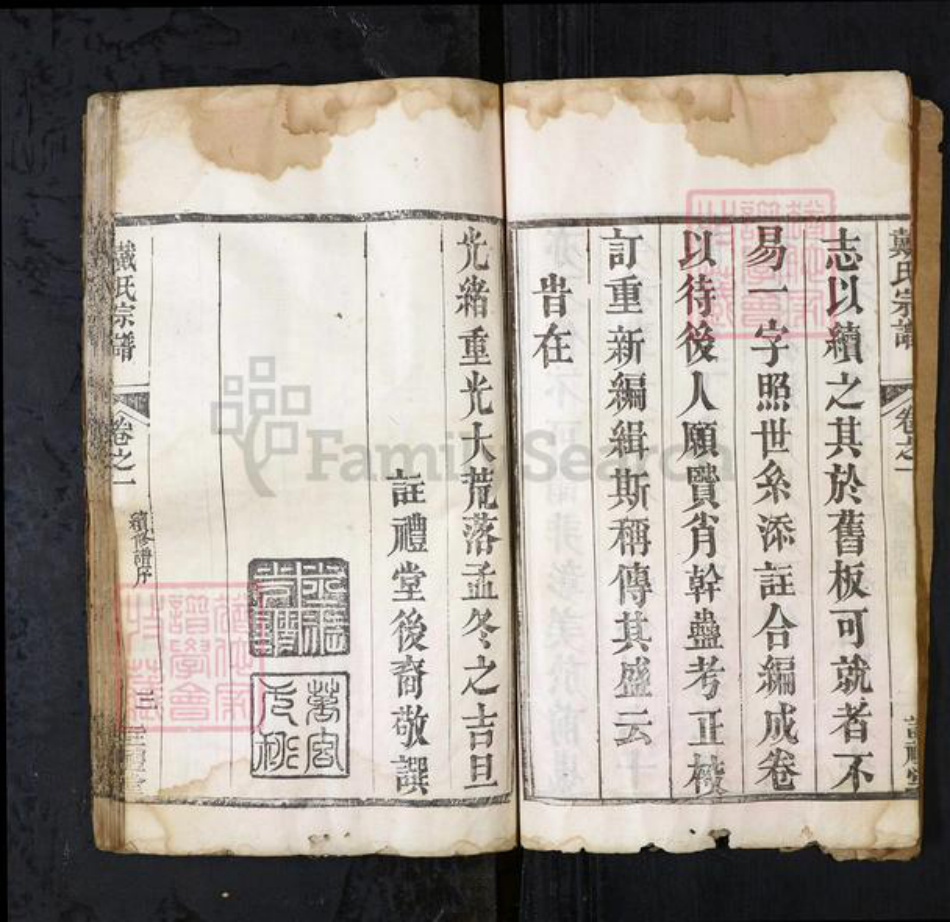 戴氏宗譜
卷之一
志以續之其於舊板可就者不
易一字照世系添註合編成卷
以待後人願賢肖幹蠱考正核
訂重新編緝斯稱傳其盛云
旹在
光緒重光大荒落孟冬之吉旦
註禮堂後裔敬譔
戴氏宗譜
卷之一
續修譜序
三
FamilySearch